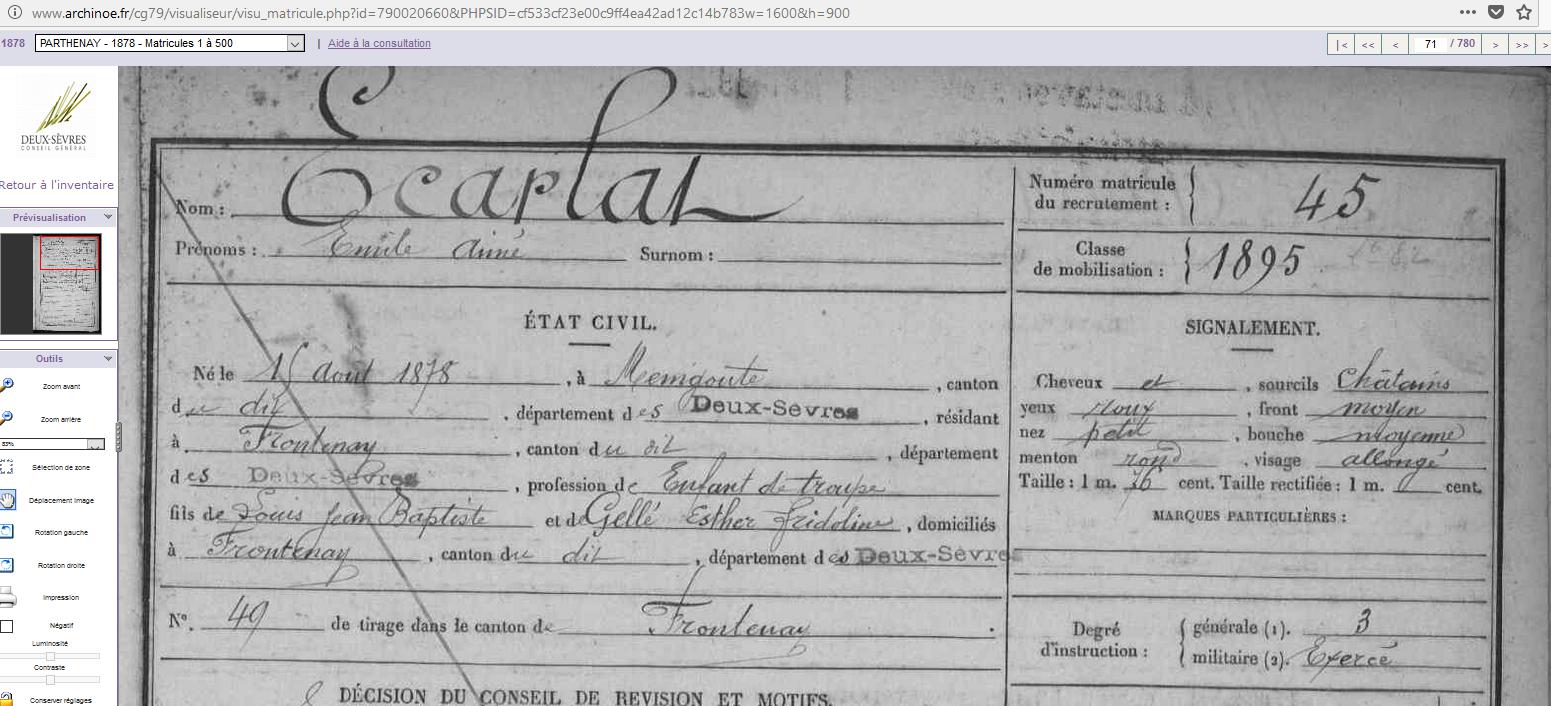 www.archinoe.fr/cg79/visualiseur/visu_matricule.php?id=790020660&PHPSID=cf533cf23e00c9ff4ea42ad12c14b783w=1600&h=900
1878 PARTHENAY - 1878 - Matricules 1 à 500 | Aide à la consultation |< << < 71 / 780 > >> >
DEUX-SÈVRES
CONSEIL GÉNÉRAL
Retour à l'inventaire
Prévisualisation
Outils
Zoom avant
Zoom arrière
83%
Sélection de zone
Déplacement Image
Rotation gauche
Rotation droite
Impression
Négatif
Luminosité
Contraste
Conserver réglages
Nom : Ecarlat
Prénoms : Emile Aimé Surnom :
Numéro matricule du recrutement : 45
Classe de mobilisation : 1895
ÉTAT CIVIL.
Né le 15 Août 1878, à Menigoute, canton
du dit, département des Deux-Sèvres, résidant
à Frontenay, canton du dit, département
des Deux-Sèvres, profession de Enfant de troupe
fils de Louis Jean Baptiste et de Gellé Esther Fridoline, domiciliés
à Frontenay, canton du dit, département des Deux-Sèvres
N°. 49 de tirage dans le canton de Frontenay.
DÉCISION DU CONSEIL DE REVISION ET MOTIFS.
SIGNALEMENT.
Cheveux et, sourcils Châtains
yeux roux, front moyen
nez petit, bouche moyenne
menton rond, visage allongé
Taille : 1 m. 76 cent. Taille rectifiée : 1 m. cent.
MARQUES PARTICULIÈRES :
Degré d'instruction : générale (1). 3
militaire (2). Exercé